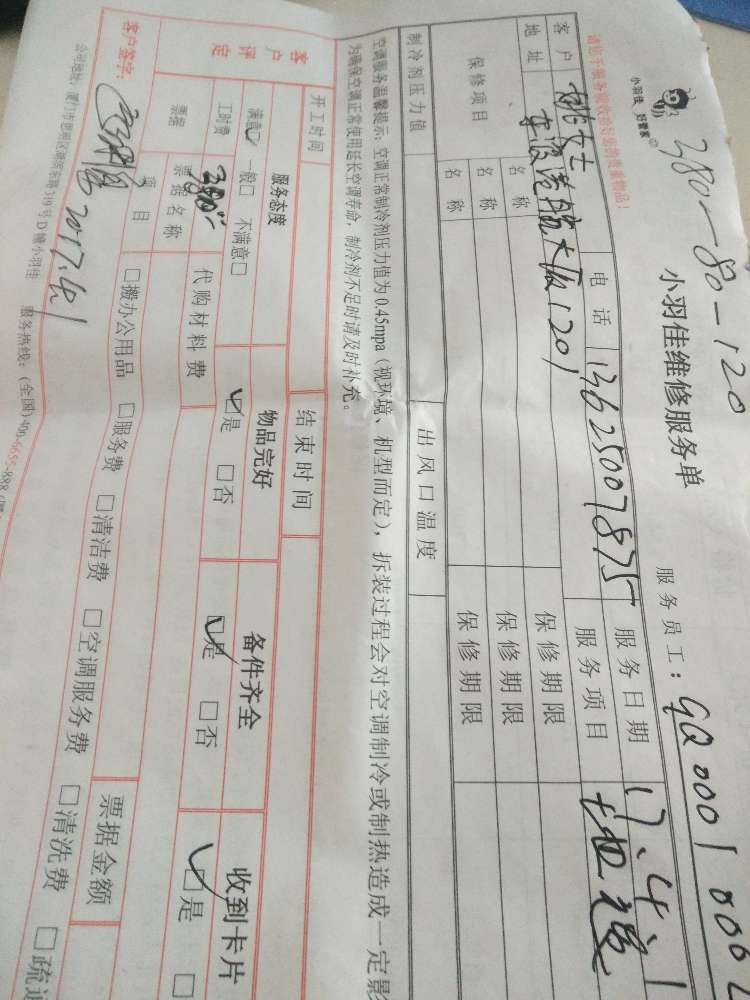 380-80-120
小羽佳 好管家
小羽佳维修服务单
服务员工：GQ0001 006
请处于服务需收存好您的贵重物品！
客户 姚女士 电话 13625007875 服务日期 17.4.1
地址 1201 服务项目
保修项目 名称 保修期限
名称 保修期限
名称 保修期限
制冷剂压力值 出风口温度
空调服务温馨提示：空调正常制冷剂压力值为0.45mpa（视环境、机型而定），拆装过程会对空调制冷或制热造成一定影
为确保空调正常使用延长空调寿命，制冷剂不足时请及时补充。
开工时间 结束时间
客户评定 服务态度 物品完好 备件齐全 收到卡片
满意□ 一般□ 不满意□ □是 □否 □是 □否 □是 □
工时费 380 代购材料费
票据 票据名称 票据金额
项目 □搬办公用品 □服务费 □清洁费 □空调服务费 □清洗费 □疏通
客户签字： 2017.4.1
公司地址：厦门市思明区湖滨东路319号D幢小羽佳 服务热线：(全国)400-6655-888